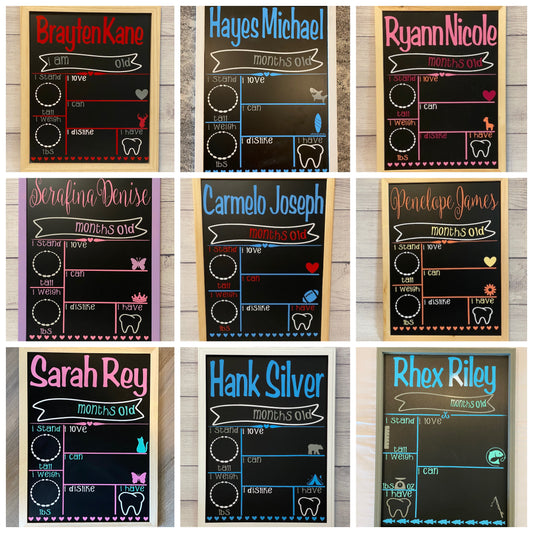 Brayten Kane
I am old
I Stand
I love
tall
I can
I Weigh
lbs
I dislike
I have
Hayes Michael
months old
I Stand
I love
tall
I can
I Weigh
lbs
I dislike
I have
Ryann Nicole
months old
I Stand
I love
tall
I can
I Weigh
lbs
I dislike
I have
Serafina Denise
months old
I Stand
I love
tall
I can
I Weigh
lbs
I dislike
I have
Carmelo Joseph
months old
I Stand
I love
tall
I can
I Weigh
lbs
I dislike
I have
Penelope James
months old
I Stand
I love
tall
I can
I Weigh
lbs
I dislike
I have
Sarah Rey
months old
I Stand
I love
tall
I can
I Weigh
lbs
I dislike
I have
Hank Silver
months old
I Stand
I love
tall
I can
I Weigh
lbs
I dislike
I have
Rhex Riley
months old
I Stand
I love
tall
I Weigh
I can
lbs
I have